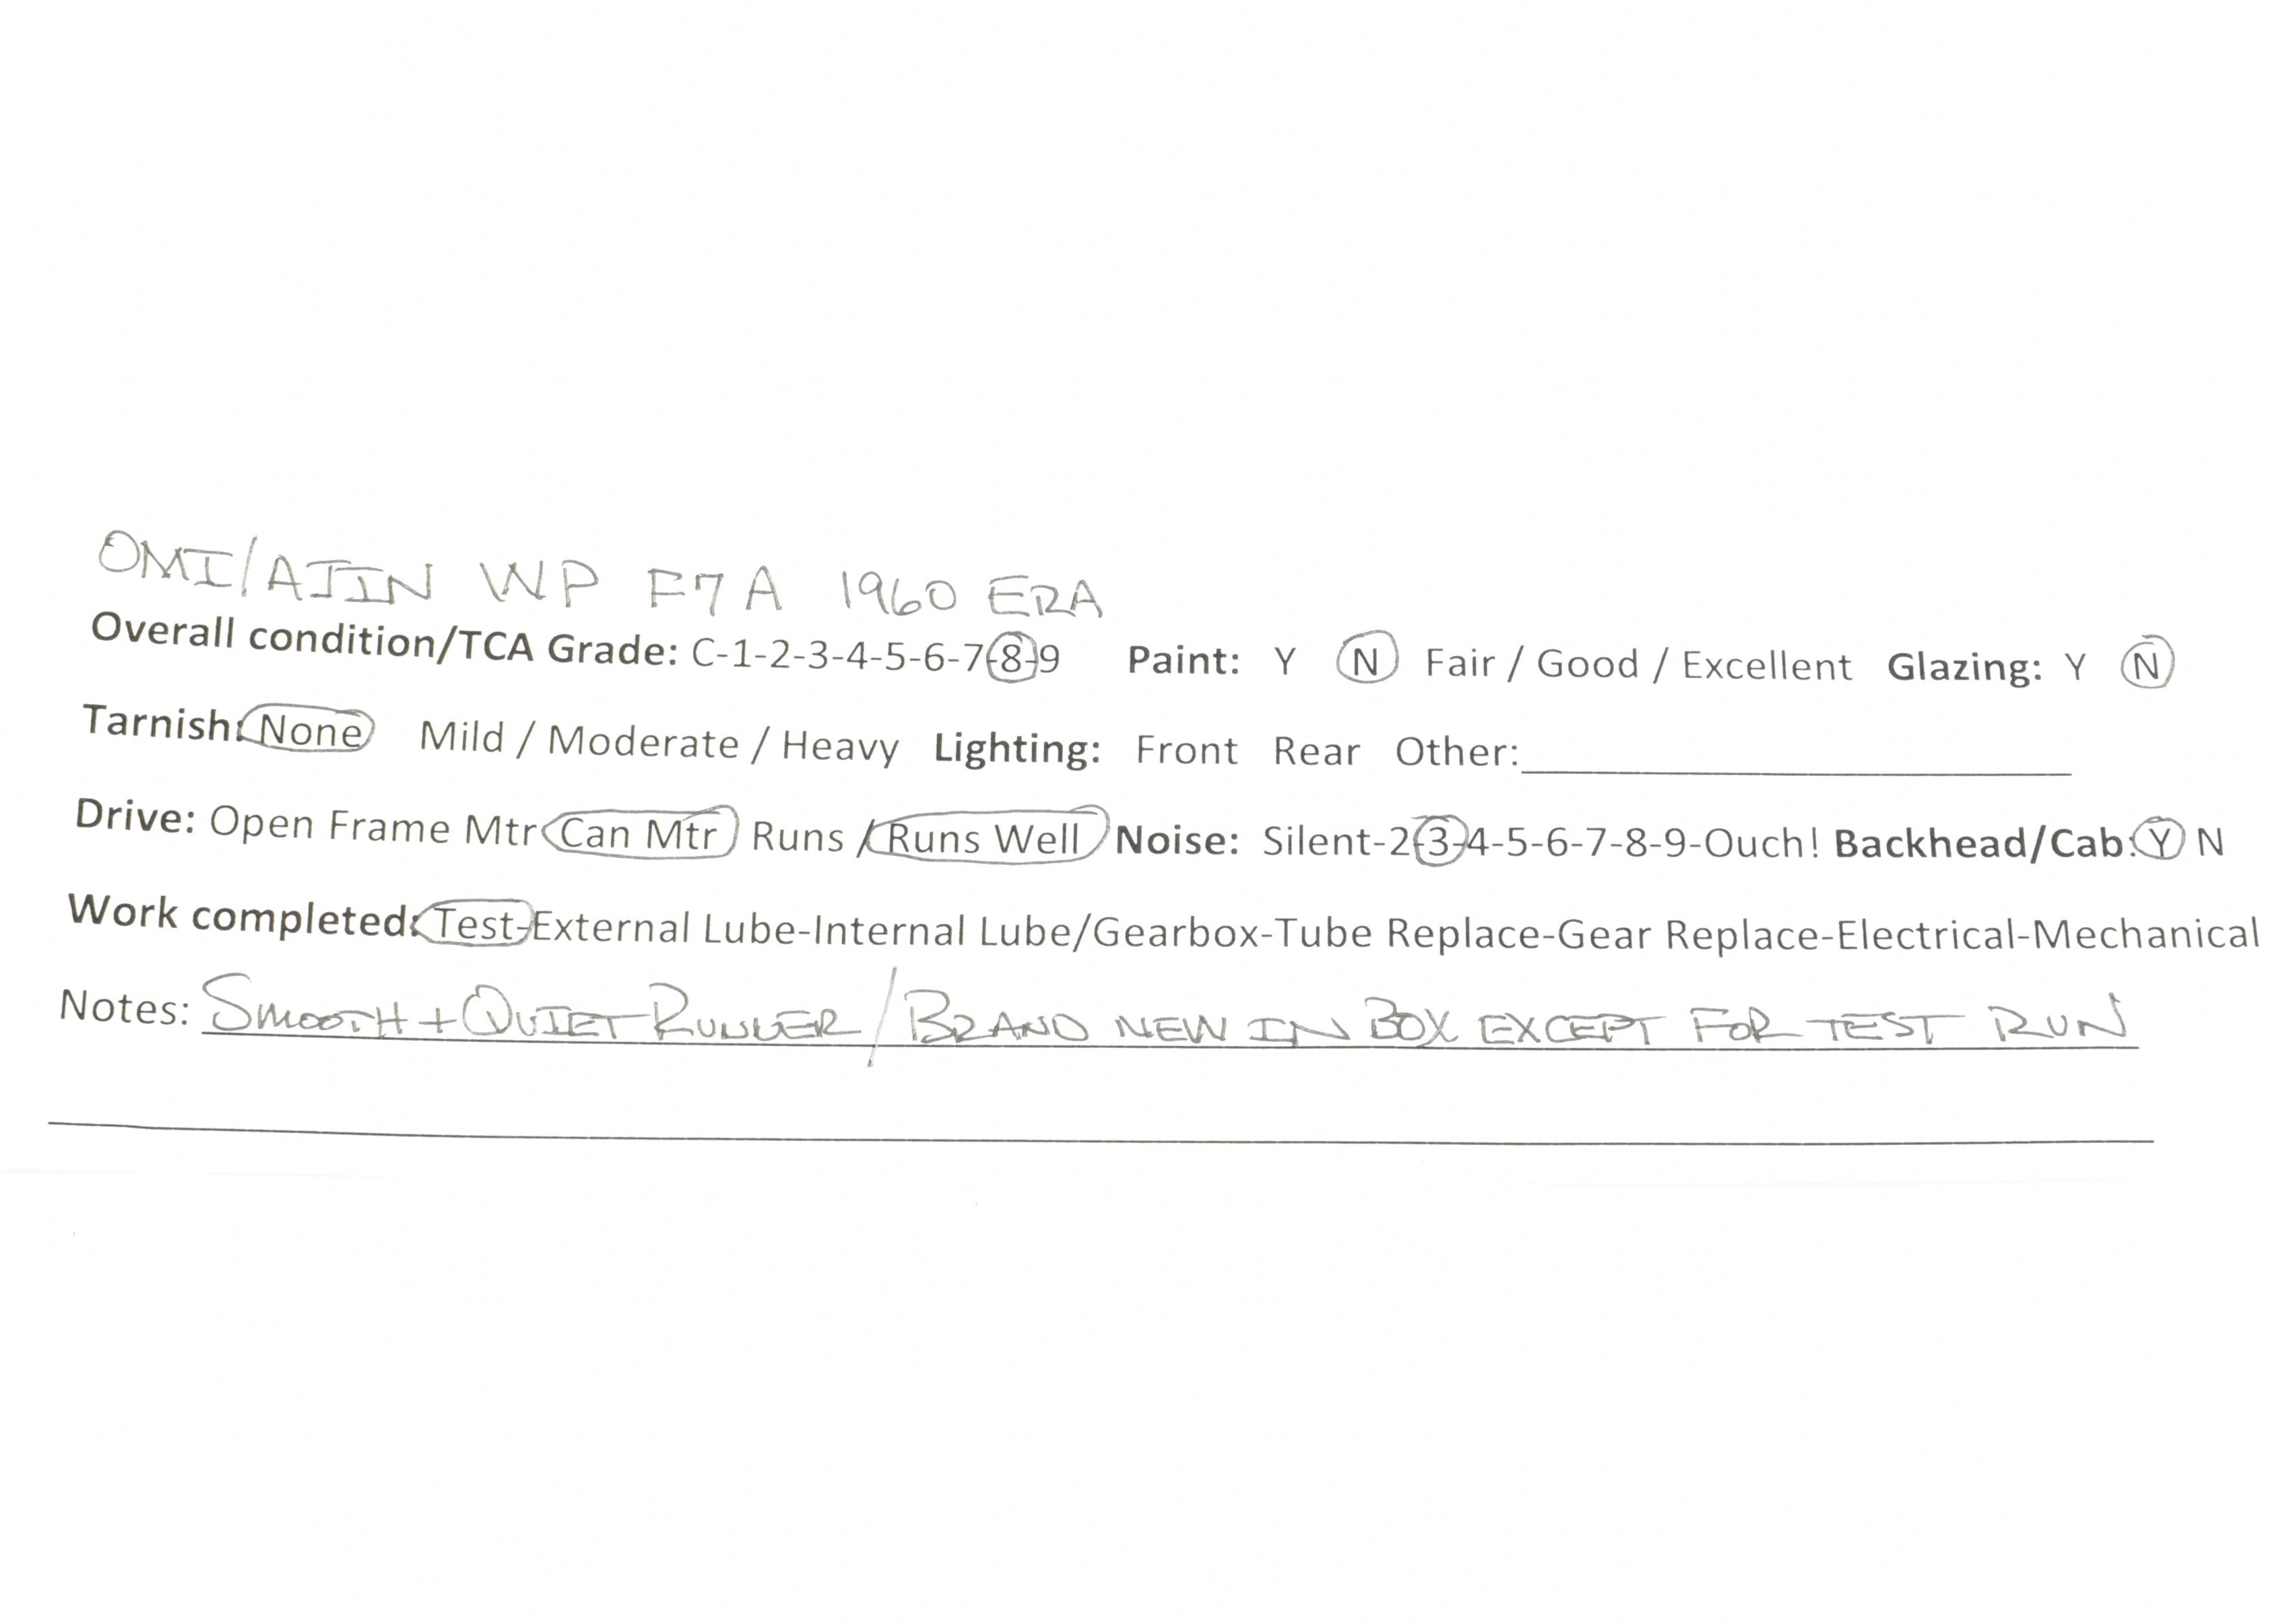 OMI/AJIN WP F7A 1960 ERA
Overall condition/TCA Grade: C-1-2-3-4-5-6-7-8-9 Paint: Y N Fair / Good / Excellent Glazing: Y N
Tarnish: None Mild / Moderate / Heavy Lighting: Front Rear Other:
Drive: Open Frame Mtr Can Mtr Runs / Runs Well Noise: Silent-2-3-4-5-6-7-8-9-Ouch! Backhead/Cab: Y N
Work completed: Test-External Lube-Internal Lube/Gearbox-Tube Replace-Gear Replace-Electrical-Mechanical
Notes: SMOOTH + QUIET RUNNER / BRAND NEW IN BOX EXCEPT FOR TEST RUN